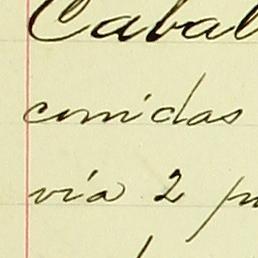 Cabal
comidas
vía 2 pu